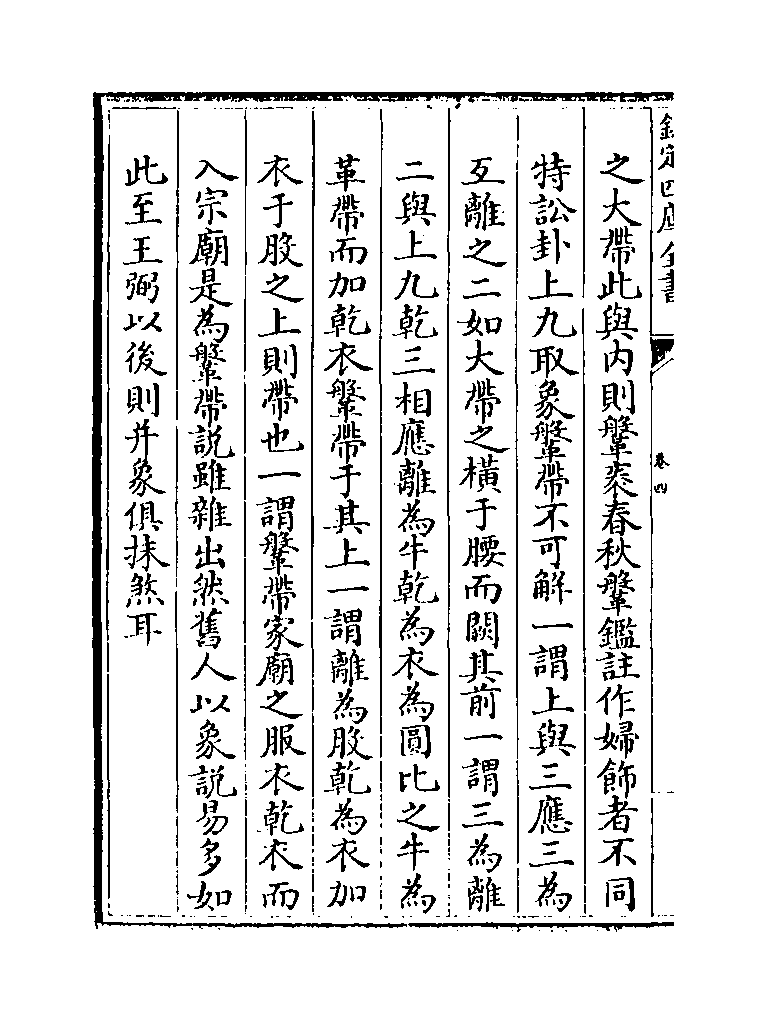 欽定四庫全書
卷四
之大帶此與内則鞶袠春秋鞶鑑註作婦飾者不同
特訟卦上九取象鞶帶不可解一謂上與三應三為
互離之二如大帶之橫于腰而闕其前一謂三為離
二與上九乾三相應離為牛乾為衣為圓比之牛為
革帶而加乾衣鞶帶于其上一謂離為股乾為衣加
衣于股之上則帶也一謂鞶帶家廟之服衣乾衣而
入宗廟是為鞶帶説雖雜出然舊人以象説易多如
此至王弼以後則并象俱抹煞耳